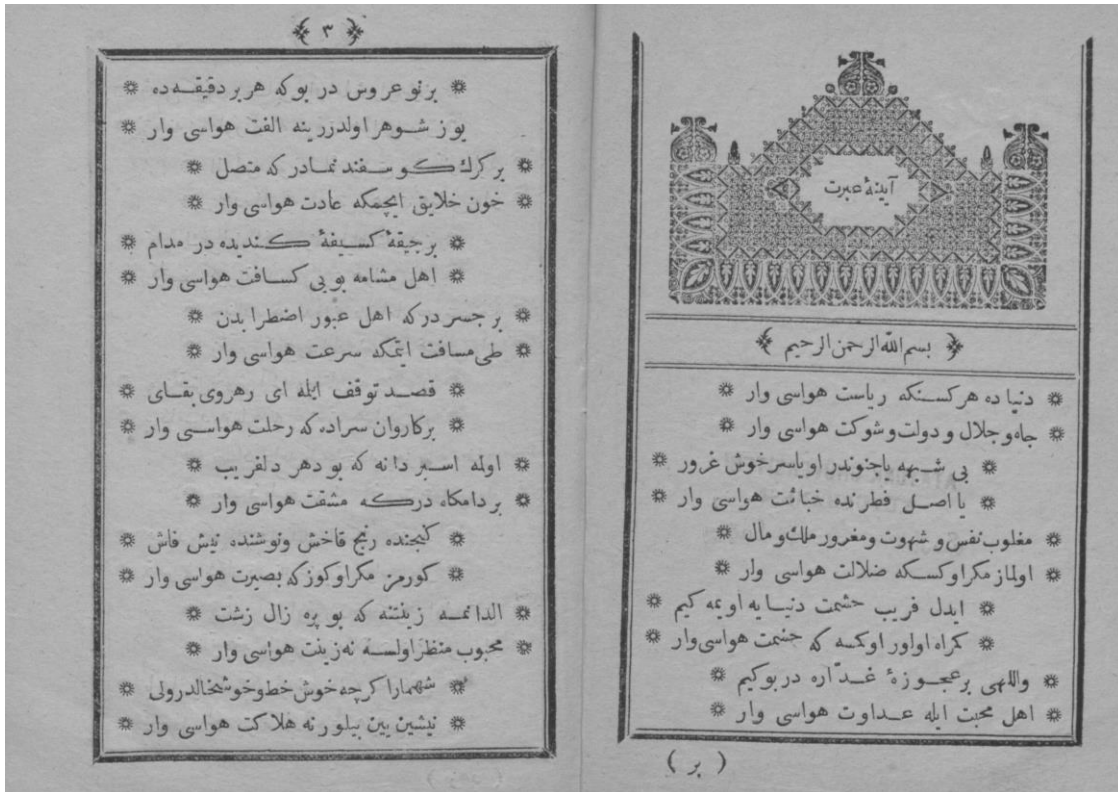 آیینهٔ عبرت
بسم الله الرحمن الرحیم
دنیا ده هر کسنکه ریاست هواسی وار
جاه و جلال و دولت و شوکت هواسی وار
بی شبهه یاجنوندر او یاسرخوش غرور
یا اصل فطرنده خبائت هواسی وار
مغلوب نفس و شهوت و مغرور ملك و مال
اولماز مکر اوکسکه ضلالت هواسی وار
ایدل فریب حشمت دنیایه اویمه کیم
کمراه اولور اوکمسه که حشمت هواسی وار
واللهی بر عجوزهٔ غدّاره در بوکیم
اهل محبت ایله عداوت هواسی وار
( بر )
٣
بر نو عروس در بوکه هر بر دقیقه ده
یوز شوهر اولدررینه الفت هواسی وار
بر کرك کوسفند نمادر که متصل
خون خلایق ایچمکه عادت هواسی وار
بر جیفهٔ کسیفهٔ کندیده در مدام
اهل مشامه بویی کسافت هواسی وار
بر جسر درکه اهل عبور اضطرابدن
طی مسافت ایتمکه سرعت هواسی وار
قصد توقف ایله ای رهروی بقای
بر کاروان سراده که رحلت هواسی وار
اوله اسیر دانه که بو دهر دلفریب
بر دامکاه درکه مشقت هواسی وار
کنجنده رنج قاخش ونوشنده نیش فاش
کورمز مکر اوکوز که بصیرت هواسی وار
الدانمه زینتنه که بو پره زال زشت
محبوب منظر اولسه نه زینت هواسی وار
شهمارا کرچه خوش خط و خوشخالدر ولی
نیشین یین بیلور نه هلاکت هواسی وار